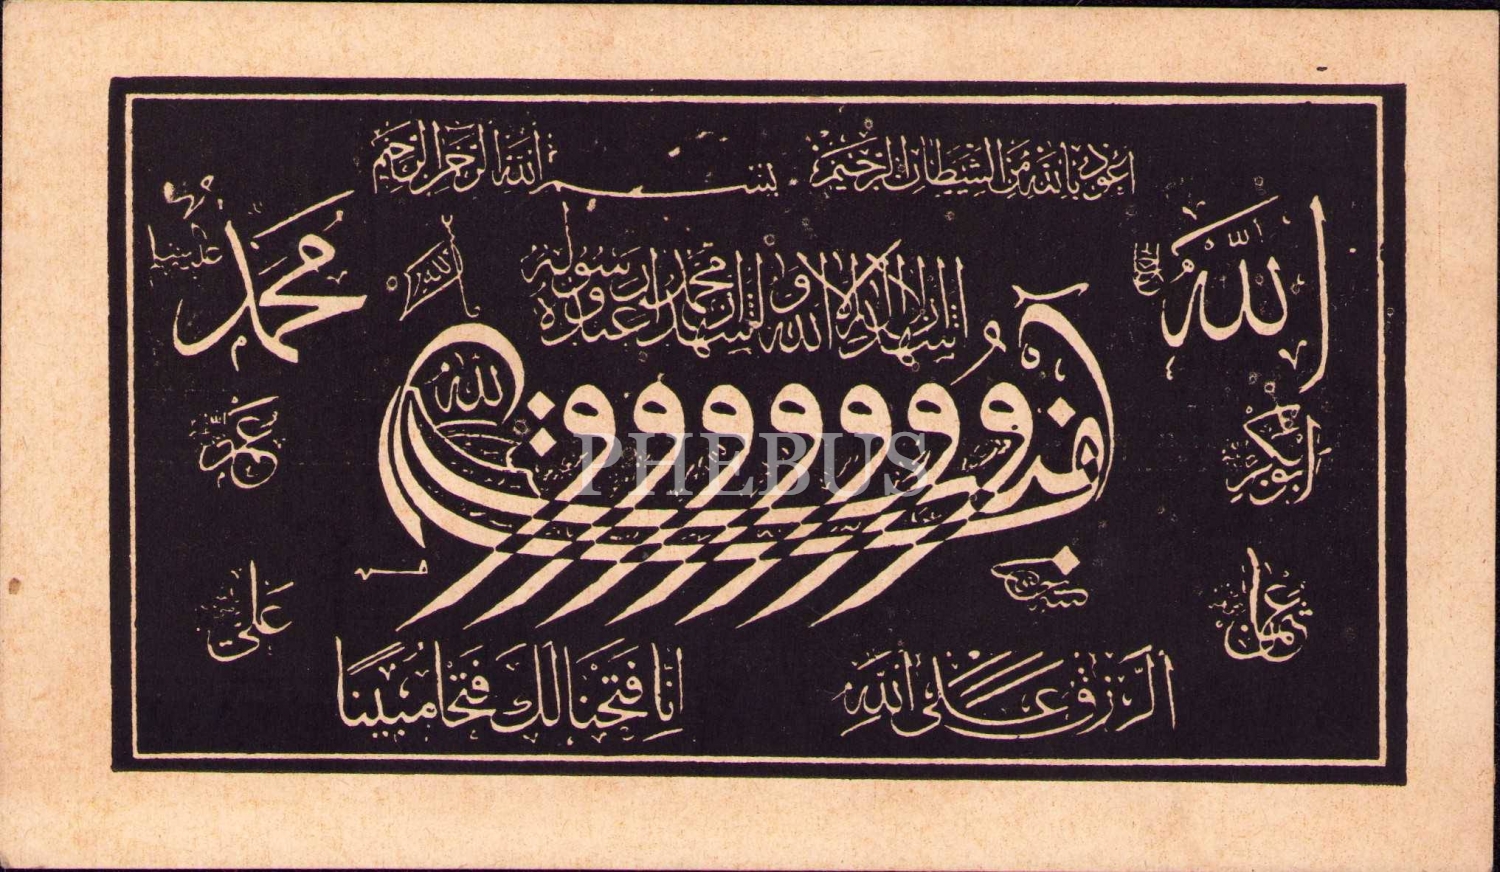 اعوذ بالله من الشيطان الرجيم
بسم الله الرحمن الرحيم
الله
جل جلاله
محمد
عليه السلام
اشهد ان لا اله الا الله و اشهد ان محمدا عبده و رسوله
الله
الله
و و و و و و و
ابوبكر
عمر
عثمان
علی
PHEBUS
الرزق علی الله
انا فتحنا لك فتحا مبينا